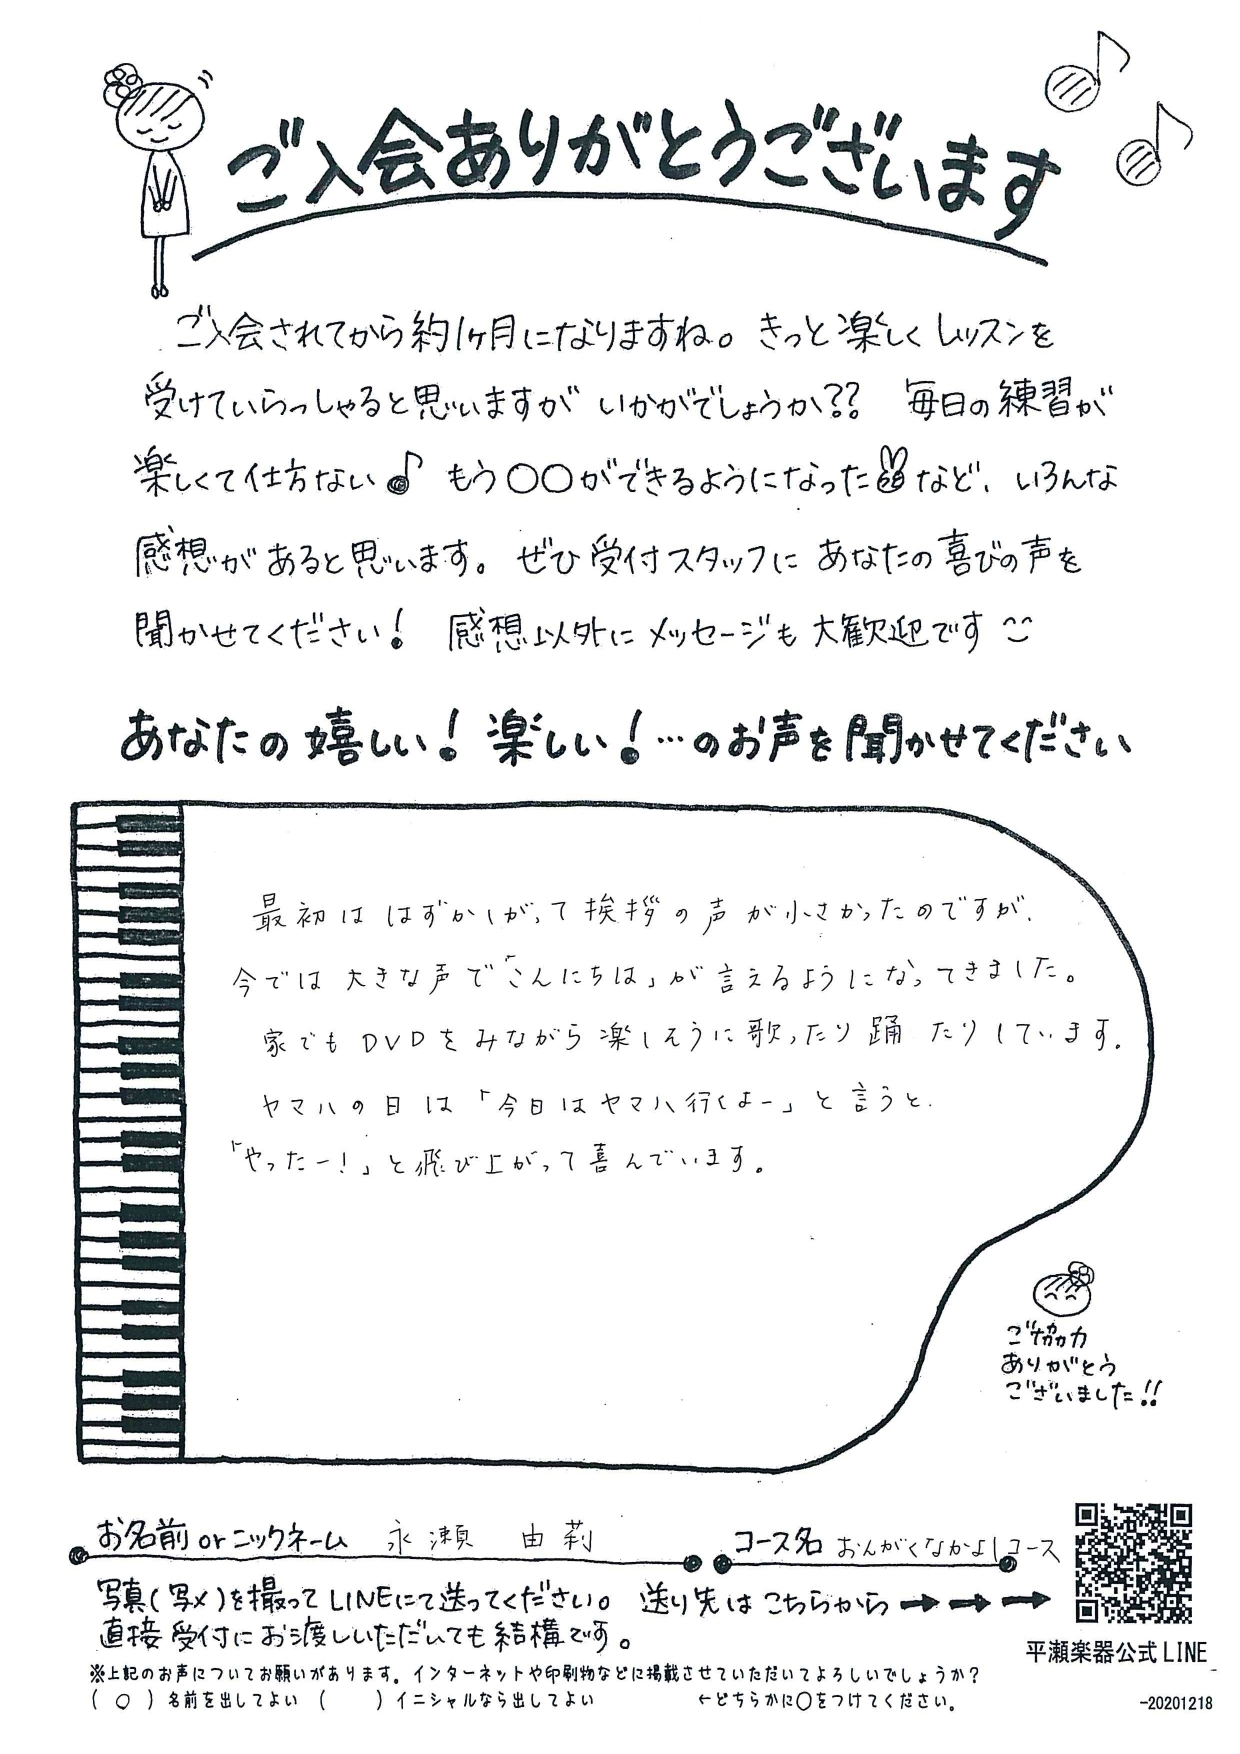 ご入会ありがとうございます
ご入会されてから約1ヶ月になりますね。きっと楽しくレッスンを
受けていらっしゃると思いますが いかがでしょうか?? 毎日の練習が
楽しくて仕方ない♪ もう○○ができるようになった など、いろんな
感想があると思います。ぜひ受付スタッフに あなたの喜びの声を
聞かせてください! 感想以外にメッセージも大歓迎です
あなたの嬉しい!楽しい!…のお声を聞かせてください
最初は はずかしがって挨拶の声が小さかったのですが、
今では大きな声で「こんにちは」が言えるようになってきました。
家でもDVDをみながら楽しそうに歌ったり踊 たりしています。
ヤマハの日は「今日はヤマハ行くよー」と言うと、
「やったー!」と飛び上がって喜んでいます。
ご協力
ありがとう
ございました!!
お名前orニックネーム 永瀬 由莉 コース名 おんがくなかよしコース
写真(写メ)を撮ってLINEにて送ってください。 送り先はこちらから→→→
直接受付にお渡しいただいても結構です。
平瀬楽器公式LINE
※上記のお声についてお願いがあります。インターネットや印刷物などに掲載させていただいてよろしいでしょうか?
(○)名前を出してよい ( )イニシャルなら出してよい ←どちらかに○をつけてください。
-20201218